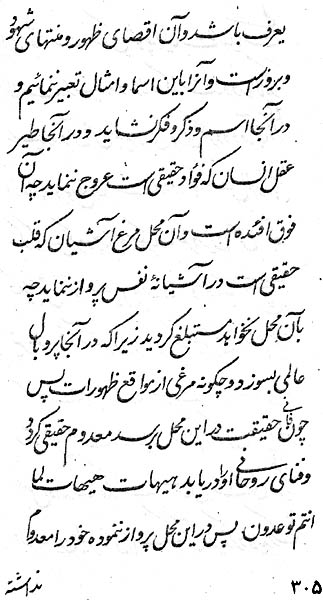 یعرف باشد و آن اقصای ظهور و منتهای شهود
و بروز است و آنرا باین اسما و امثال تعبیر نمائیم و
در آنجا اسم و ذکر و فکر نشاید و در آنجا طیر
عقل انسان که فؤاد حقیقی است عروج ننماید چه آن
فوق افئده است و آن محل مرغ آشیان که قلب
حقیقی است در آشیانهٔ نفس پرواز ننماید چه
بآن محل نخواهد مستبلغ گردید زیرا که در آنجا پر و بال
عالی بسوزد و چگونه مرغی از مواقع ظهورات پس
چون حقیقت در این محل برسد معدوم حقیقی گردد
و فنای روحانی او را دریابد هیهات هیهات لما
انتم توعدون پس در این محل پرواز ننموده خود را معدوم
نداشته
۳۰۵